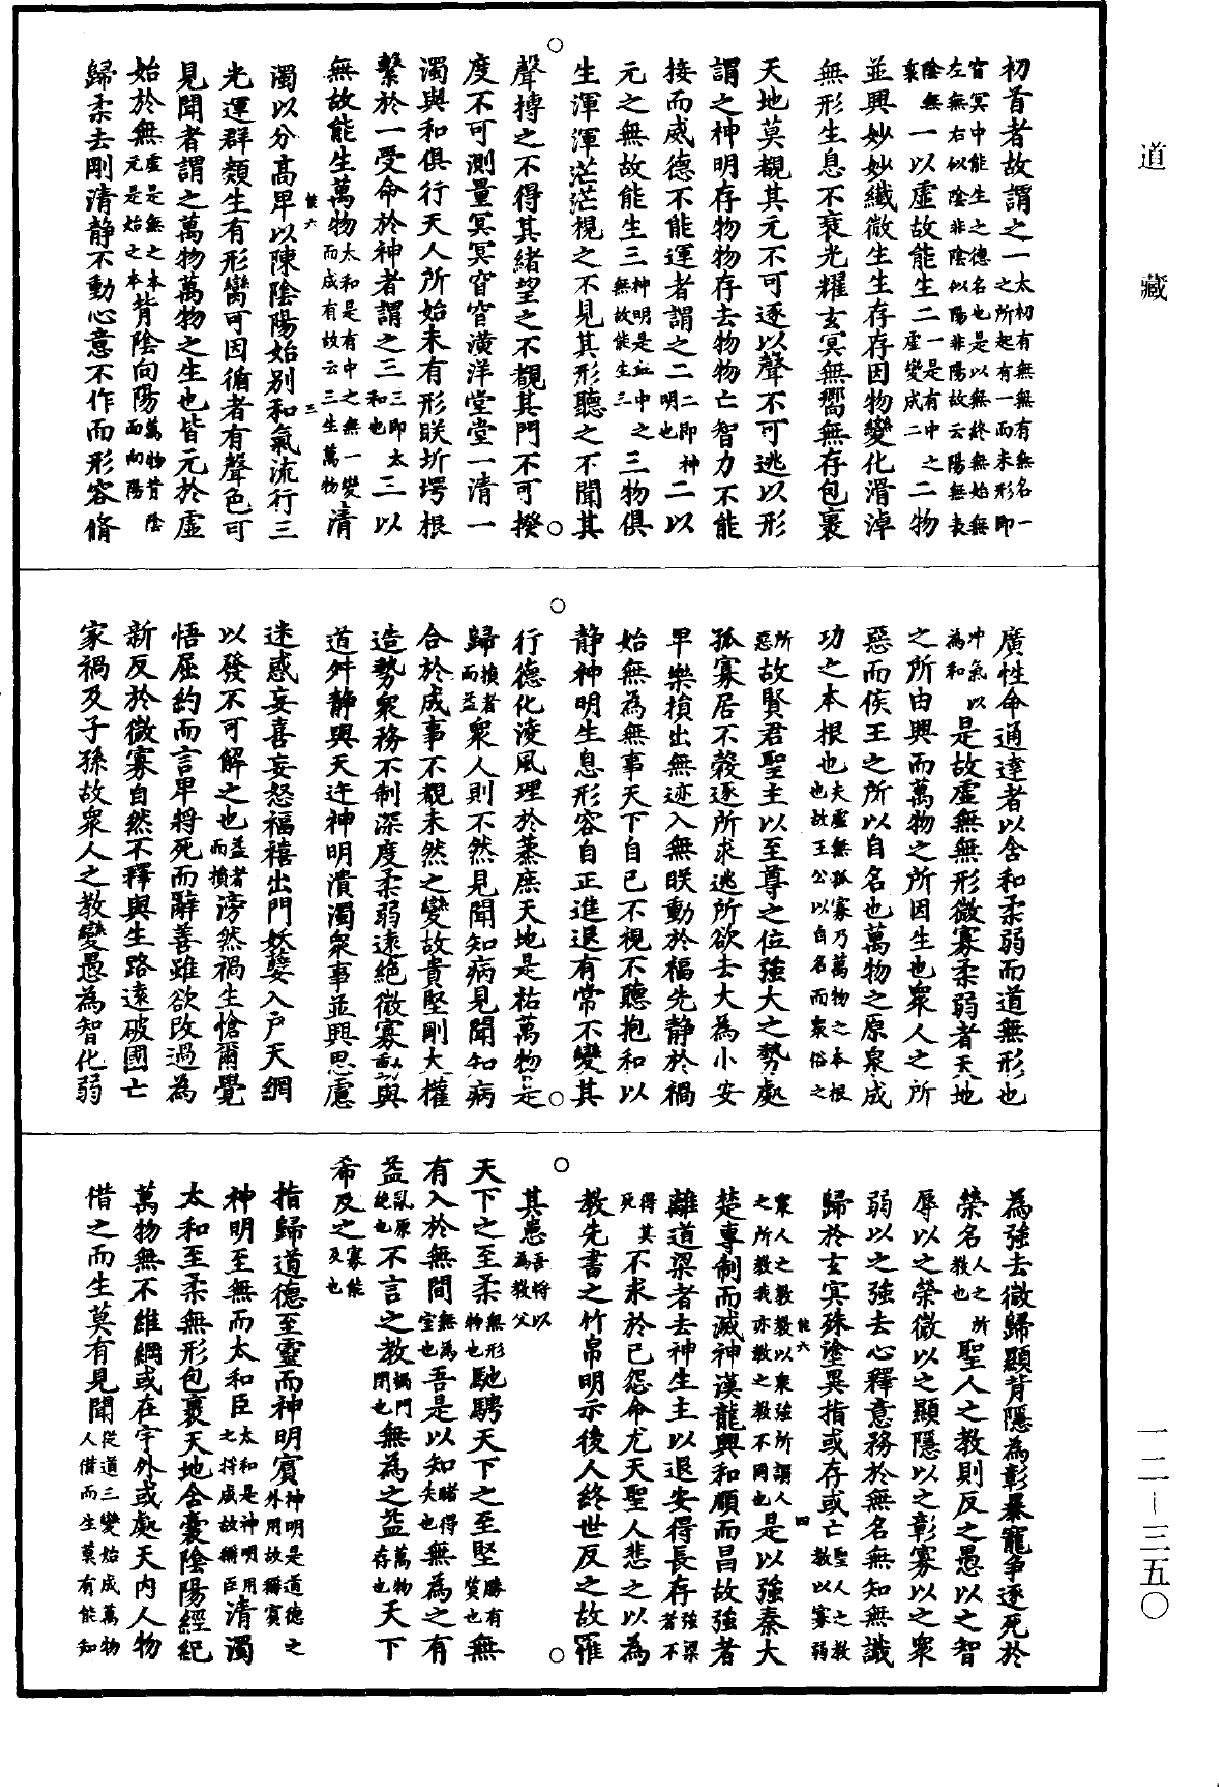 道藏
一二-三五〇
初首者故謂之一太初有無無有無名一之所起有一而未形即
窅冥中能生之德名也是以無終無始無左無右似陰非陰似陽非陽故云陽無表
陰無裏一以虛故能生二一是有中之虛變成二二物
並興妙妙纖微生生存存因物變化滑淖
無形生息不衰光耀玄冥無嚮無存包裹
天地莫覩其元不可逐以聲不可逃以形
謂之神明存物物存去物物亡智力不能
接而威德不能運者謂之二二即神明也二以
元之無故能生三神明是無中之無故能生三三物俱
生渾渾茫茫視之不見其形聽之不聞其
聲搏之不得其緒望之不覩其門不可揆
度不可測量冥冥窅窅潢洋堂堂一清一
濁與和俱行天人所始未有形朕圻堮根
繫於一受命於神者謂之三三即太和也三以
無故能生萬物太和是有中之無一變而成有故云三生萬物清
能六 三
濁以分高卑以陳陰陽始別和氣流行三
光運群類生有形臠可因循者有聲色可
見聞者謂之萬物萬物之生也皆元於虛
始於無虛是無之本無元是始之本背陰向陽萬物背陰而向陽
歸柔去剛清靜不動心意不作而形容脩
廣性命通達者以含和柔弱而道無形也
沖氣以為和是故虛無無形微寡柔弱者天地
之所由興而萬物之所因生也衆人之所
惡而侯王之所以自名也萬物之原泉成
功之本根也夫虛無孤寡乃萬物之本根也故王公以自名而衆俗之
所惡故賢君聖主以至尊之位強大之勢處
孤寡居不穀逐所求逃所欲去大為小安
卑樂損出無迹入無朕動於福先靜於禍
始無為無事天下自已不視不聽抱和以
靜神明生息形容自正進退有常不變其
行德化淩風理於蒸庶天地是祐萬物是
歸損者而益衆人則不然見聞知病見聞知病
合於成事不覩未然之變故貴堅剛大權
造勢衆務不制深度柔弱遠絕微寡動與
道舛靜與天迕神明潰濁衆事並興思慮
迷惑妄喜妄怒福禧出門妖孽入戶天網
以發不可解之也益者而損滂然禍生愴爾覺
悟屈約而言卑將死而辭善雖欲改過為
新反於微寡自然不釋與生路遠破國亡
家禍及子孫故衆人之教變愚為智化弱
為強去微歸顯背隱為彰暴寵爭逐死於
榮名人之所教也聖人之教則反之愚以之智
辱以之榮微以之顯隱以之彰寡以之衆
弱以之強去心釋意務於無名無知無識
歸於玄冥殊塗異指或存或亡聖人之教教以寡弱
衆人之教教以衆強所謂人之所教我亦教之教不同也是以強秦大
能六 四
楚專制而滅神漢龍興和順而昌故強者
離道梁者去神生主以退安得長存強梁者不
得其死不求於己怨命尤天聖人悲之以為
教先書之竹帛明示後人終世反之故罹
其患吾將以為教父
天下之至柔無形物也馳騁天下之至堅勝有質也無
有入於無間無為室也吾是以知睹得失也無為之有
益亂原絕也不言之教禍門閉也無為之益萬物存也天下
希及之寡能及也
指歸道德至靈而神明賓神明是道德之外用故稱賓
神明至無而太和臣太和是神明用之捋成故稱臣清濁
太和至柔無形包裹天地含囊陰陽經紀
萬物無不維綱或在宇外或處天內人物
借之而生莫有見聞從道三變始成萬物人借而生莫有能知